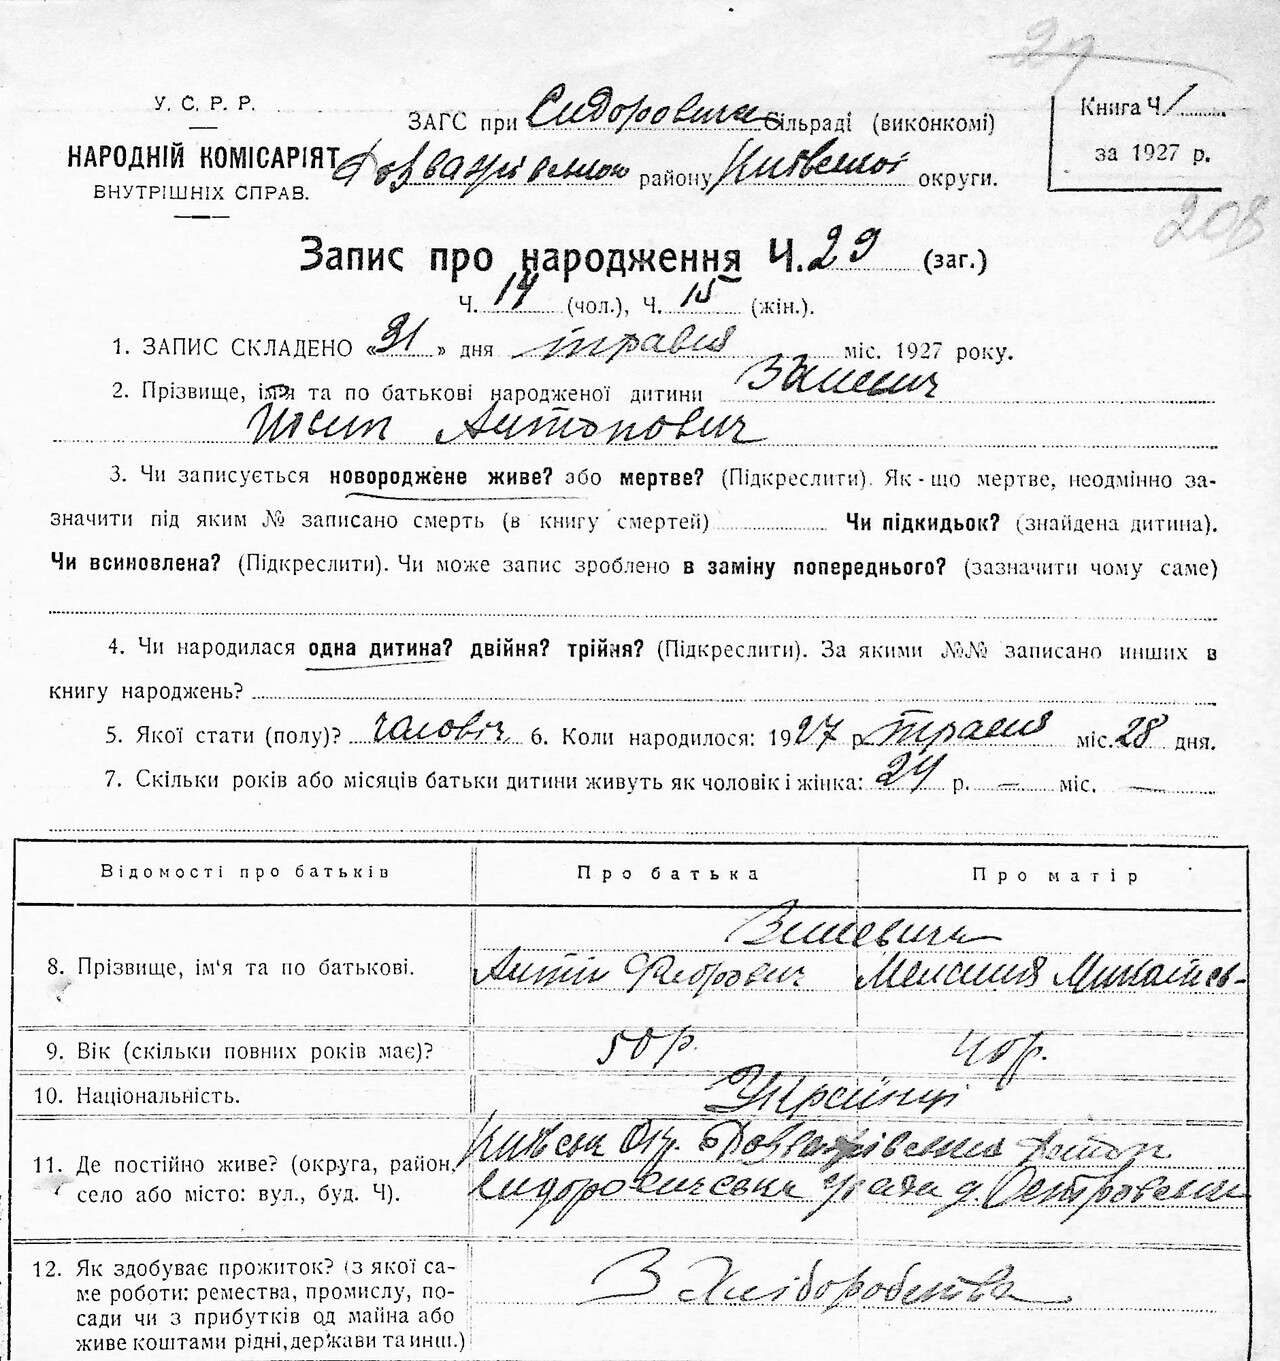 29
У. С. Р. Р.
НАРОДНІЙ КОМІСАРІЯТ
ВНУТРІШНІХ СПРАВ.
ЗАГС при Сидоровича Сільраді (виконкомі)
району Київської округи.
Книга Ч 1
за 1927 р.
208
Запис про народження Ч. 29 (заг.)
Ч. 14 (чол.), Ч. 15 (жін.).
1. ЗАПИС СКЛАДЕНО «31» дня травня міс. 1927 року.
2. Прізвище, ім'я та по батькові народженої дитини
Антонович
3. Чи записується новороджене живе? або мертве? (Підкреслити). Як-що мертве, неодмінно за-
значити під яким № записано смерть (в книгу смертей) Чи підкидьок? (знайдена дитина).
Чи всиновлена? (Підкреслити). Чи може запис зроблено в заміну попереднього? (зазначити чому саме)
4. Чи народилася одна дитина? двійня? трійня? (Підкреслити). За якими №№ записано инших в
книгу народжень?
5. Якої стати (полу)? чоловіч 6. Коли народилося: 1927 р. травня міс. 28 дня.
7. Скільки років або місяців батьки дитини живуть як чоловік і жінка: 24 р. — міс. —
Відомості про батьків Про батька Про матір
8. Прізвище, ім'я та по батькові.
Антін Федорович
9. Вік (скільки повних років має)? 50 р. 40 р.
10. Національність. Українці
11. Де постійно живе? (округа, район,
село або місто: вул., буд. Ч).
12. Як здобуває прожиток? (з якої са-
ме роботи: ремества, промислу, по-
сади чи з прибутків од майна або
живе коштами рідні, держави та инш.)
З Хліборобства